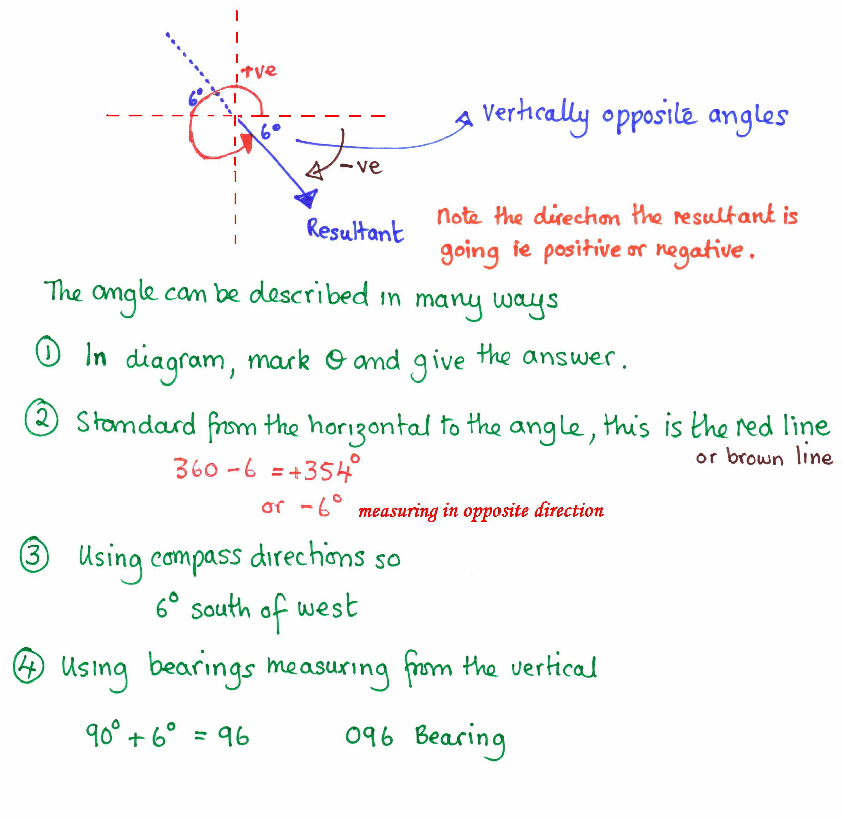 +ve
6°
6°
Vertically opposite angles
-ve
Resultant
Note the direction the resultant is
going ie positive or negative.
The angle can be described in many ways
① In diagram, mark θ and give the answer.
② Standard from the horizontal to the angle, this is the red line
or brown line
360 - 6 = +354°
or -6° measuring in opposite direction
③ Using compass directions so
6° south of west
④ Using bearings measuring from the vertical
90° + 6° = 96 096 Bearing